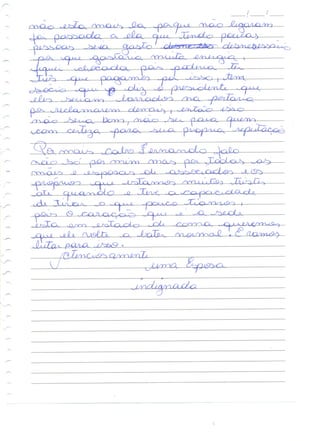 não esta mais la porque não ligaram
foi passada a ela que tendo poucas
pessoas seria gasto desnecessario
por que gastaria muita energia,
fiquei chocada pois poderia ter
que pagamos por isso, tem
socio que diz o presidente que
eles seriam barrados na portaria
por reclamarem demais, então isso
não seria bom, não sei para quem
com certeza para sua propria reputação
Por mais Fernando falo
não só por mim mas por todas as
mães e esposas de associados e os
proprios que estamos muitos tristes
até quando e ter a capacidade
de tirar o que pouco tinamos,
pois o coração que é a sede
esta em estado de coma queremos
que ele volte a bater normal. E vamos
lutar para isso.
Atenciosamente
uma Esposa
indignada